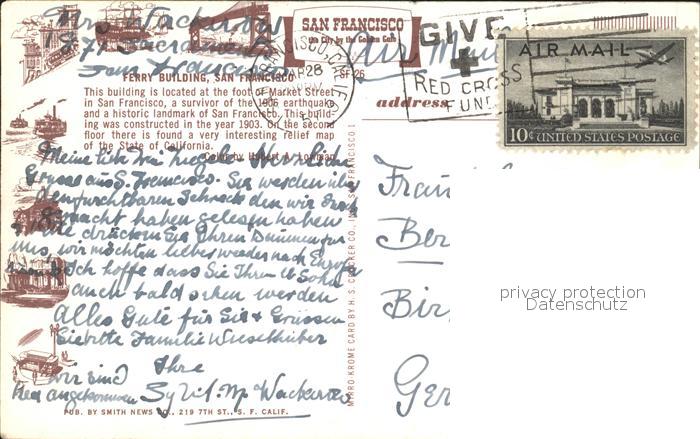 Mrs Wackerow
1877 Sacramento
San Francisco
SAN FRANCISCO
the City by the Golden Gate
SF-26
Air Mail
SAN FRANCISCO, CALIF.
MAR 28
GIVE
RED CROSS
FUND
AIR MAIL
10¢ UNITED STATES POSTAGE
FERRY BUILDING, SAN FRANCISCO
This building is located at the foot of Market Street
in San Francisco, a survivor of the 1906 earthquake
and a historic landmark of San Francisco. This build-
ing was constructed in the year 1903. On the second
floor there is found a very interesting relief map
of the State of California.
Color by Robert A.
address
Meine liebe Frau Herzliche
Grüsse aus S. Francisco. Sie werden über
den furchtbaren Schreck den wir
gemacht haben gelesen haben
Bitte drücken Sie Ihren Daumen für
uns, wir möchten lieber wieder nach
Ich hoffe dass Sie Ihren Sohn
auch bald sehen werden
Alles Gute für Sie & Grüssen
Sie bitte Familie
Ihre
wir sind
angekommen
Wackerow
MIRRO-KROME CARD BY H. S. CROCKER CO., INC., SAN FRANCISCO 1
PUB. BY SMITH NEWS CO., 219 7TH ST., S. F. CALIF.
Ber
Bir
Ger
privacy protection
Datenschutz